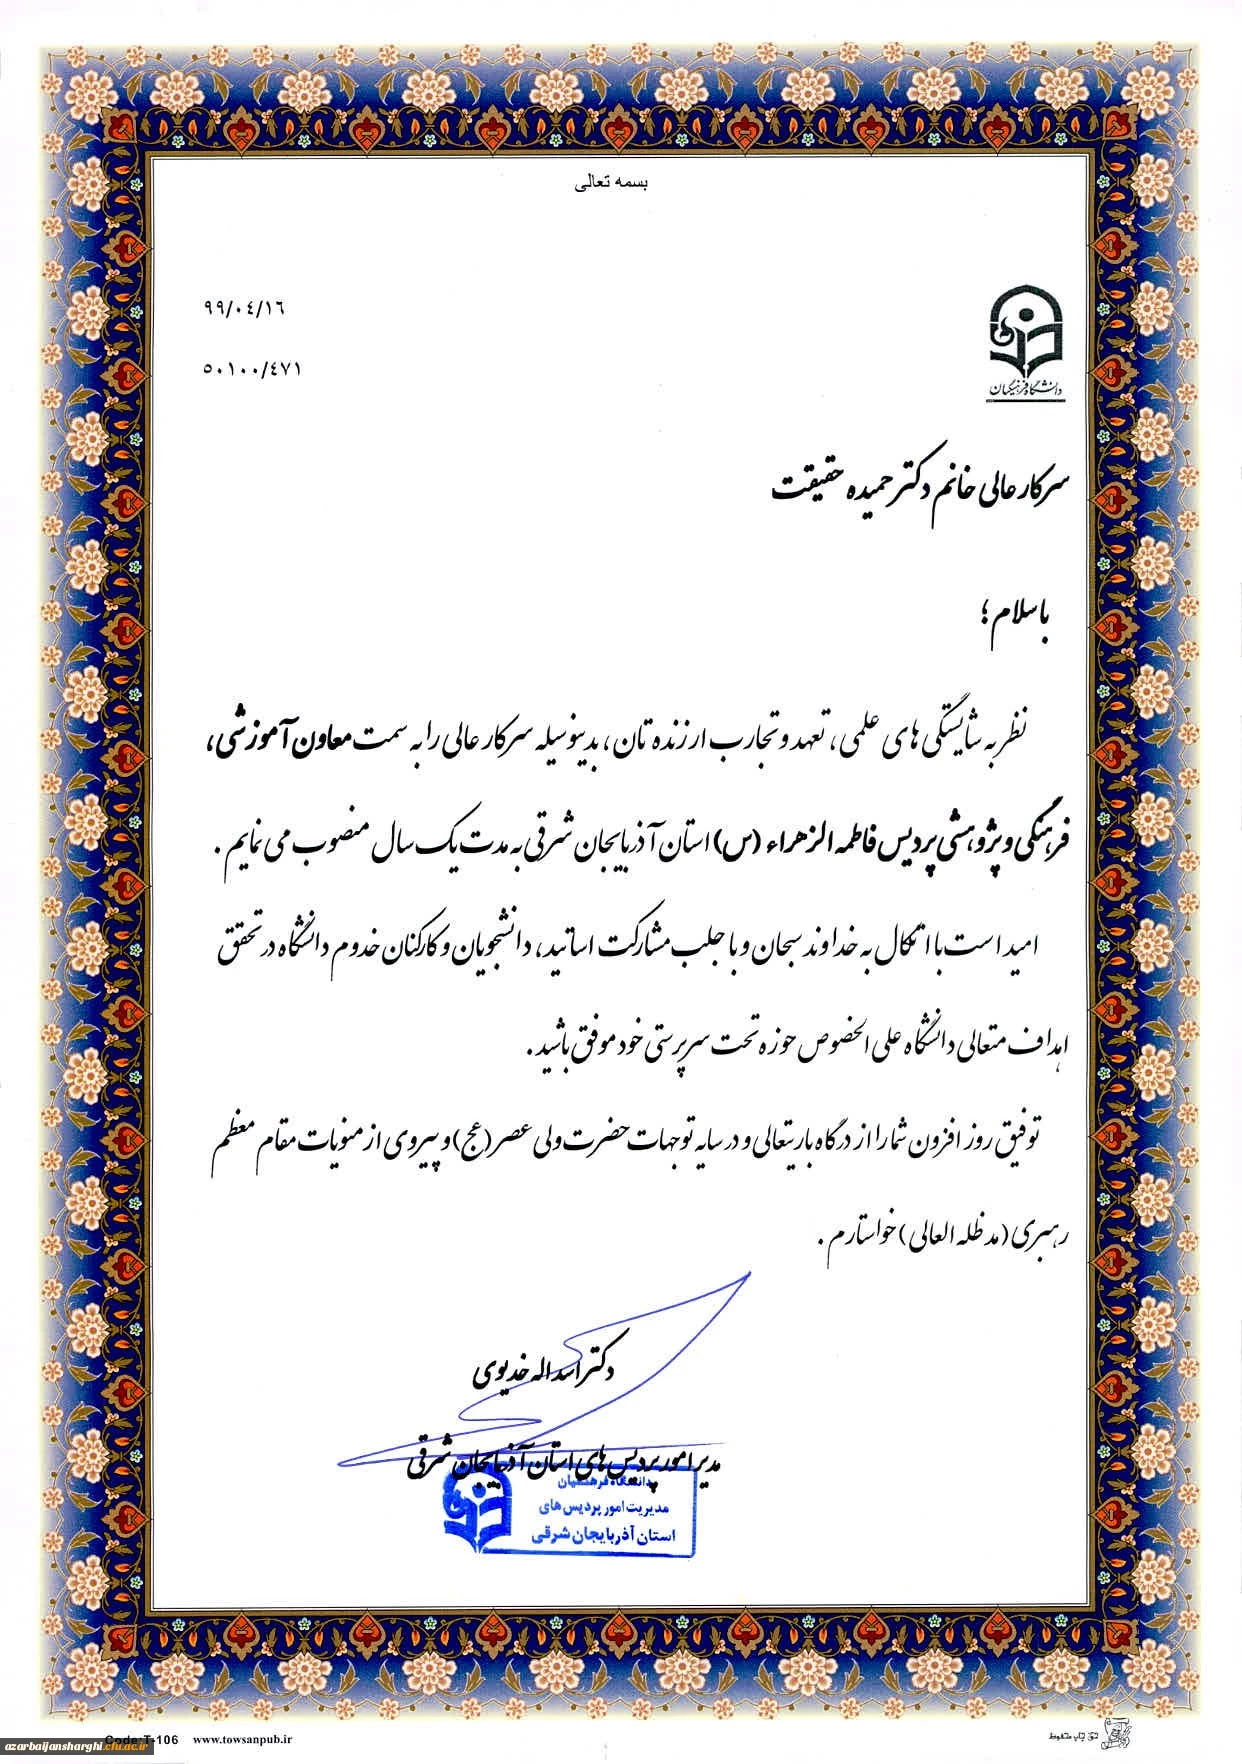 بسمه تعالی
۹۹/۰٤/۱٦
۵۰۱۰۰/٤۷۱
دانشگاه فرهنگیان
سرکار عالی خانم دکتر حمیده حقیقت
با سلام ؛
نظر به شایستگی های علمی ، تعهد و تجارب ارزنده تان ، بدینوسیله سرکار عالی را به سمت معاون آموزشی ،
فرهنگی و پژوهشی پردیس فاطمه الزهراء (س) استان آذربایجان شرقی به مدت یک سال منصوب می نمایم .
امید است با اتکال به خداوند سبحان و با جلب مشارکت اساتید ، دانشجویان و کارکنان خدوم دانشگاه در تحقق
اهداف متعالی دانشگاه علی الخصوص حوزه تحت سرپرستی خود موفق باشید .
توفیق روز افزون شما را از درگاه باریتعالی و در سایه توجهات حضرت ولی عصر (عج) و پیروی از منویات مقام معظم
رهبری (مدظله العالی) خواستارم .
دکتر اسداله خدیوی
مدیر امور پردیس های استان آذربایجان شرقی
دانشگاه فرهنگیان
مدیریت امور پردیس های
استان آذربایجان شرقی
Code:T-106 www.towsanpub.ir
azarbaijansharghi.cfu.ac.ir